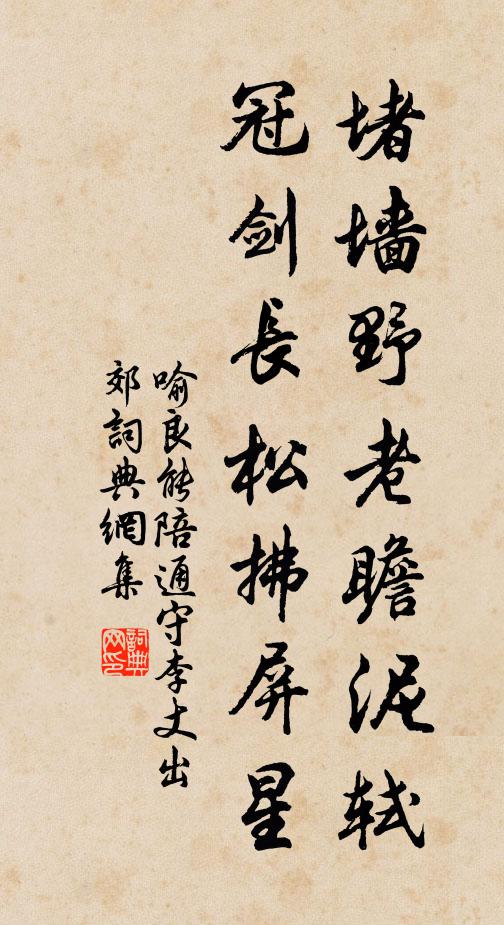 堵墙野老瞻泥轼
冠剑長松拂屏星
喻良能陪通守李丈出
郊詞典網集
詞典网印